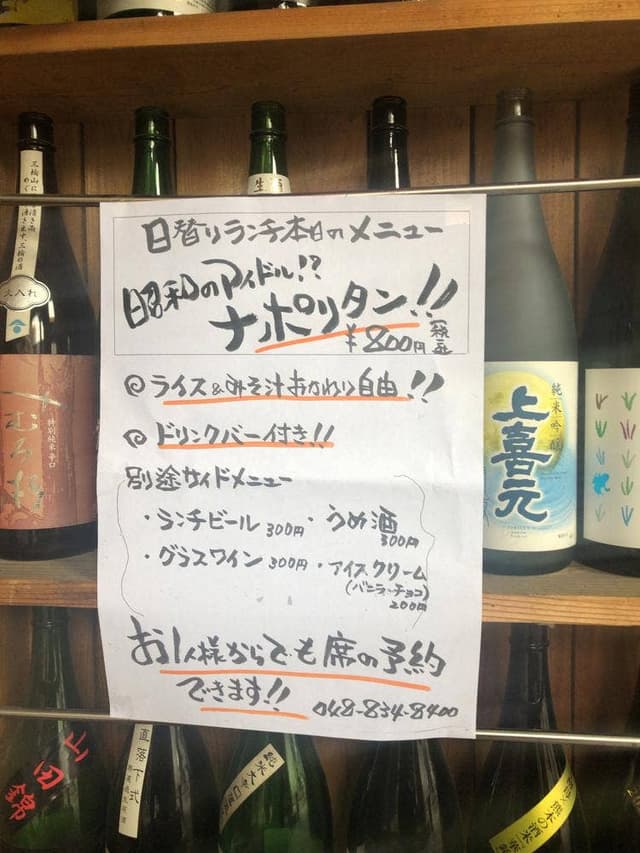 生酒
三輪山に
火入れ
むろ杉
特別純米辛口
日替りランチ本日のメニュー
昭和のアイドル!?
ナポリタン!!
¥800円(税込)
ライス&みそ汁おかわり自由!!
ドリンクバー付き!!
別途サイドメニュー
・ランチビール 300円 ・うめ酒 300円
・グラスワイン 300円 ・アイスクリーム
(バニラ・チョコ)
200円
お1人様からでも席の予約
できます!! 048-834-8400
純米吟醸
上喜元
山田錦
直落下式
純米大吟醸